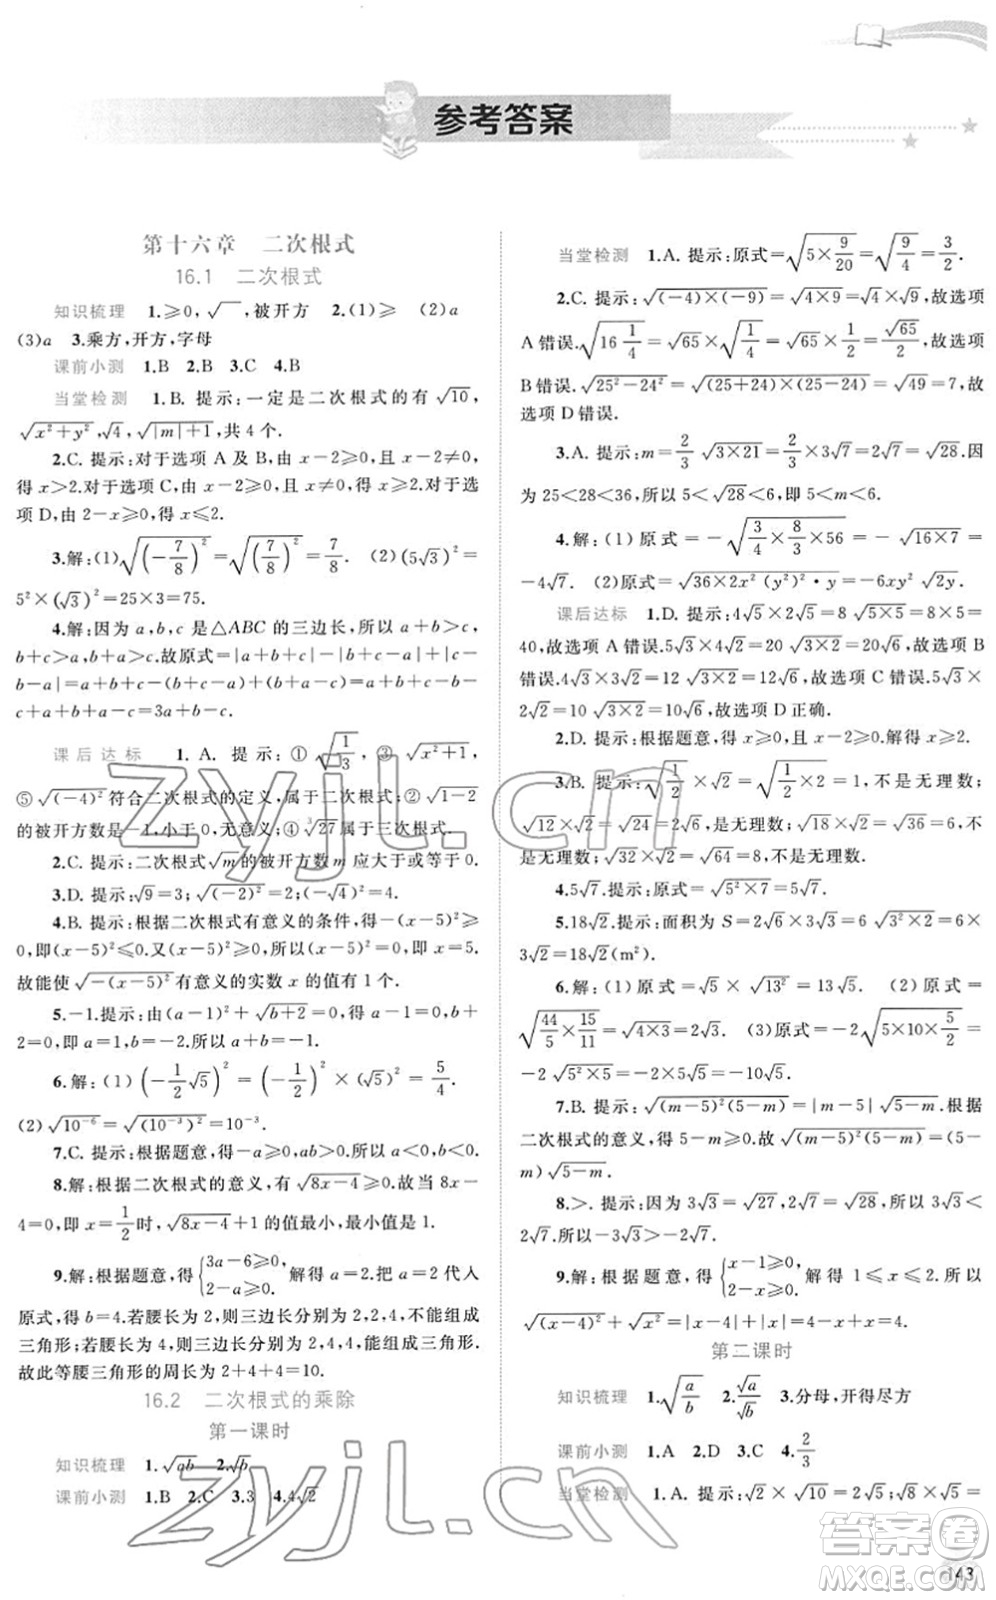 参考答案
第十六章 二次根式
16.1 二次根式
知识梳理 1.≥0,√‾,被开方 2.(1)≥ (2)a
(3)a 3.乘方,开方,字母
课前小测 1.B 2.B 3.C 4.B
当堂检测 1.B. 提示:一定是二次根式的有√10,
√(x²+y²),√4,√(|m|+1),共4个.
2.C. 提示:对于选项A及B,由x-2≥0,且x-2≠0,
得x>2.对于选项C,由x-2≥0,且x≠0,得x≥2.对于选
项D,由2-x≥0,得x≤2.
3.解:(1)√((-7/8)²)=√((7/8)²)=7/8. (2)(5√3)²=
5²×(√3)²=25×3=75.
4.解:因为a,b,c是△ABC的三边长,所以a+b>c,
b+c>a,a+c>b.故原式=|a+b+c|-|b+c-a|+|c-
b-a|=a+b+c-(b+c-a)+(a+b-c)=a+b+c-b-
c+a+b+a-c=3a+b-c.
课后达标 1. A. 提示:①√(1/3),③√(x²+1),
⑤√((-4)²)符合二次根式的定义,属于二次根式;②√(1-2)
的被开方数是-1,小于0,无意义;④³√27属于三次根式.
2.C. 提示:二次根式√m的被开方数m应大于或等于0.
3.D. 提示:√9=3;√((-2)²)=2;(-√4)²=4.
4.B. 提示:根据二次根式有意义的条件,得-(x-5)²≥
0,即(x-5)²≤0.又(x-5)²≥0,所以(x-5)²=0,即x=5.
故能使√(-(x-5)²)有意义的实数x的值有1个.
5.-1.提示:由(a-1)²+√(b+2)=0,得a-1=0,b+
2=0,所以a=1,b=-2.所以a+b=-1.
6.解:(1)(-1/2√5)²=(-1/2)²×(√5)²=5/4.
(2)√(10⁻⁶)=√((10⁻³)²)=10⁻³.
7.C. 提示:根据题意,得-a≥0,ab>0.所以a<0,b<0.
8.解:根据二次根式的意义,有√(8x-4)≥0.故当8x-
4=0,即x=1/2时,√(8x-4)+1的值最小,最小值是1.
9.解:根据题意,得{3a-6≥0, 2-a≥0. 解得a=2.把a=2代入
原式,得b=4.若腰长为2,则三边长分别为2,2,4,不能组成
三角形;若腰长为4,则三边长分别为2,4,4,能组成三角形.
故此等腰三角形的周长为2+4+4=10.
16.2 二次根式的乘除
第一课时
知识梳理 1.√ab 2.√b
课前小测 1.B 2.C 3.3 4.4√2
当堂检测 1.A. 提示:原式=√(5×9/20)=√(9/4)=3/2.
2.C. 提示:√((-4)×(-9))=√(4×9)=√4×√9,故选项
A错误.√(16 1/4)=√65×√(1/4)=√65×√(1/4)=√65/2,故选项
B错误.√(25²-24²)=√((25+24)×(25-24))=√49=7,故
选项D错误.
3.A. 提示:m=2/3√(3×21)=2/3×3×√7=2√7=√28.因
为25<28<36,所以5<√28<6,即5<m<6.
4.解:(1)原式=-√(3/4×8/3×56)=-√(16×7)=
-4√7. (2)原式=√(36×2x²(y²)²·y)=-6xy²√2y.
课后达标 1.D. 提示:4√5×2√5=8√(5×5)=8×5=
40,故选项A错误.5√3×4√2=20√(3×2)=20√6,故选项B
错误.4√3×3√2=12√(3×2)=12√6,故选项C错误.5√3×
2√2=10√(3×2)=10√6,故选项D正确.
2.D. 提示:根据题意,得x≥0,x-2≥0,解得x≥2.
3.B. 提示:√(1/2)×√2=√(1/2×2)=1,不是无理数;
√12×√2=√24=2√6,是无理数;√18×√2=√36=6,不
是无理数;√32×√2=√64=8,不是无理数.
4.5√7. 提示:原式=√(5²×7)=5√7.
5.18√2.提示:面积为S=2√6×3√3=6√(3²×2)=6×
3√2=18√2(m²).
6.解:(1)原式=√5×√(13²)=13√5. (2)原式=
√(44/5×15/11)=√(4×3)=2√3. (3)原式=-2√(5×10×5/2)=
-2√(5²×5)=-2×5√5=-10√5.
7.B. 提示:√((m-5)²(5-m))=|m-5|√(5-m).根据
二次根式的意义,得5-m≥0.故√((m-5)²(5-m))=(5-
m)√(5-m).
8.>. 提示:因为3√3=√27,2√7=√28,所以3√3<
2√7.所以-3√3>-2√7.
9.解:根据题意,得{x-1≥0, 2-x≥0. 解得1≤x≤2.所以
√((x-4)²)+√((x-1)²)=|x-4|+|x-1|=4-x+x-1=3.
第二课时
知识梳理 1.√(a/b) 2.√a/√b 3.分母,开得尽方
课前小测 1.A 2.D 3.C 4.2/3
当堂检测 1.A. 提示:√2×√10=2√5;√8×√2=
143
zyjl.cn
答案卷
MXQE.COM